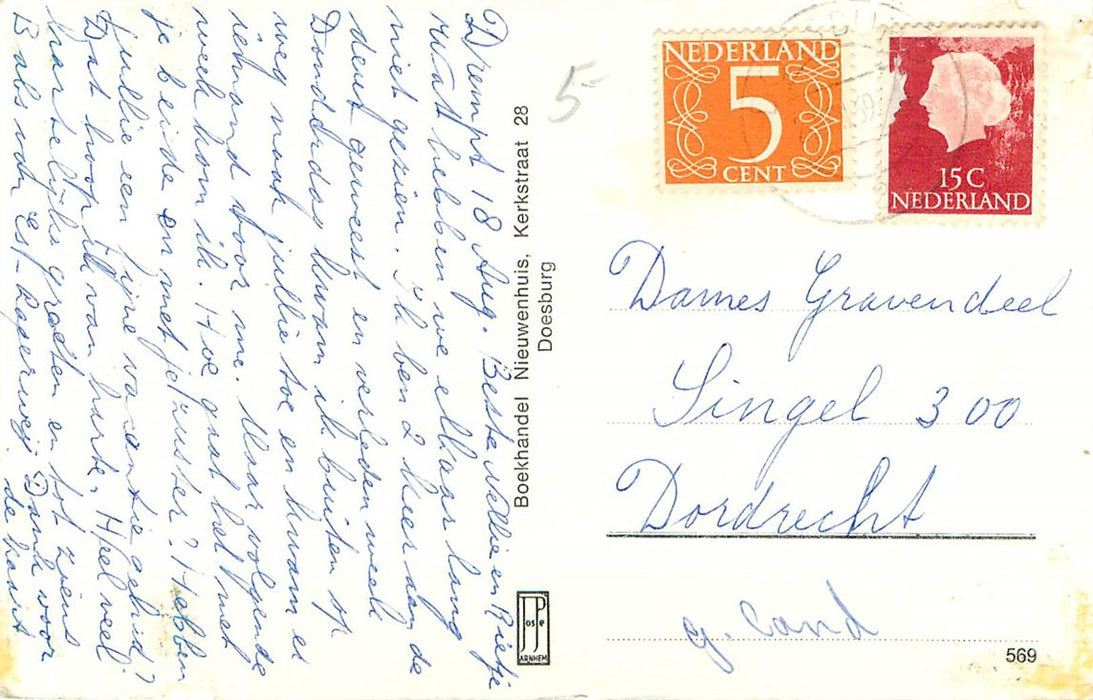 Drempt 18 Aug. Beste Nellie en Rietje
wat hebben we elkaar lang
niet gezien. Ik ben 2 keer aan de
deur geweest en verleden week
Donderdag kwam ik buiten op
weg naar jullie toe en kwam er
iemand voor me. Maar volgende
week kom ik. Hoe gaat het met
je beide en met je zuster? Hebben
jullie een fijne vacantie gehad?
Dat hoop ik van harte. Heel veel
hartelijke groeten en tot ziens
Babs van Es-
Dank voor
de kaart
Boekhandel Nieuwenhuis, Kerkstraat 28
Doesburg
JosPe
ARNHEM
5-
NEDERLAND
5
CENT
15 C
NEDERLAND
Dames Gravendeel
Singel 300
Dordrecht
569